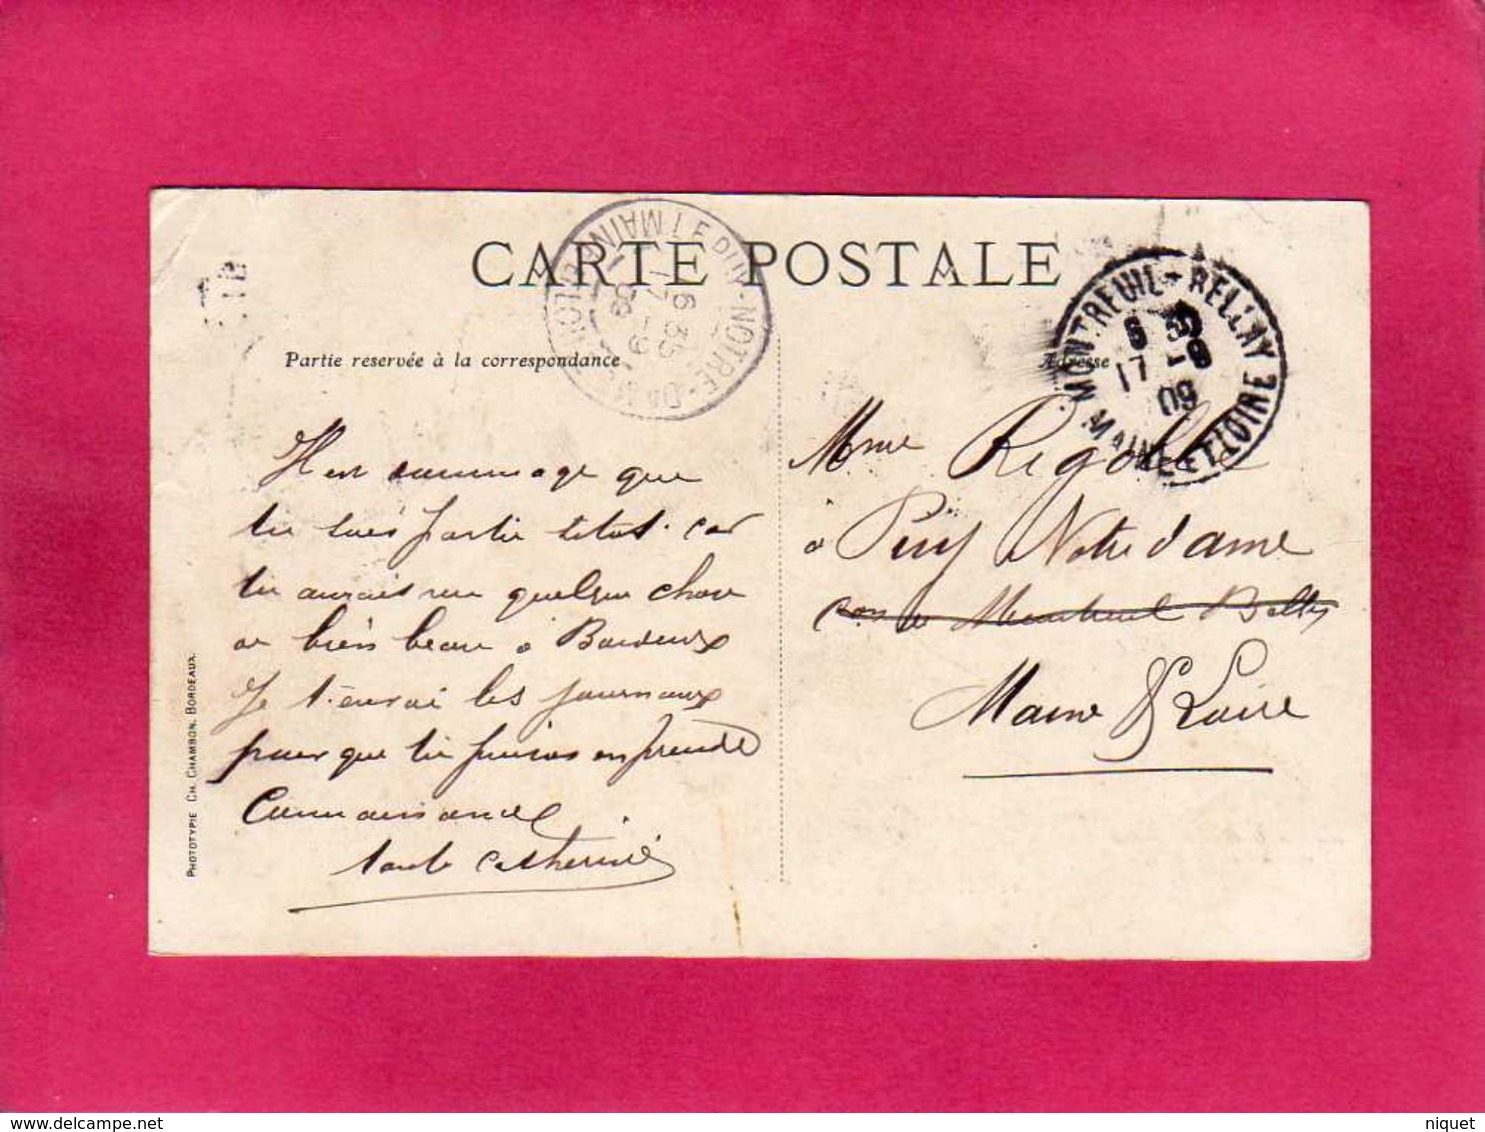 CARTE POSTALE
LE PUY-NOTRE-DAME
MAINE
6 35
17 - 9
09
MONTREUIL-BELLAY
MAINE ET LOIRE
17 - 9
09
Partie reservée à la correspondance
Adresse
Il est dommage que
tu sois partie sitot. car
tu aurais vu quelque chose
de bien beau à Bordeaux
Je t'envoi les journaux
pour que tu puisse en prendre
Connaissance
tante Catherine
Mme Rigolle
à Puy Notre dame
Montreuil Bellay
Maine & Loire
PHOTOTYPIE CH. CHAMBON, BORDEAUX.
niquet